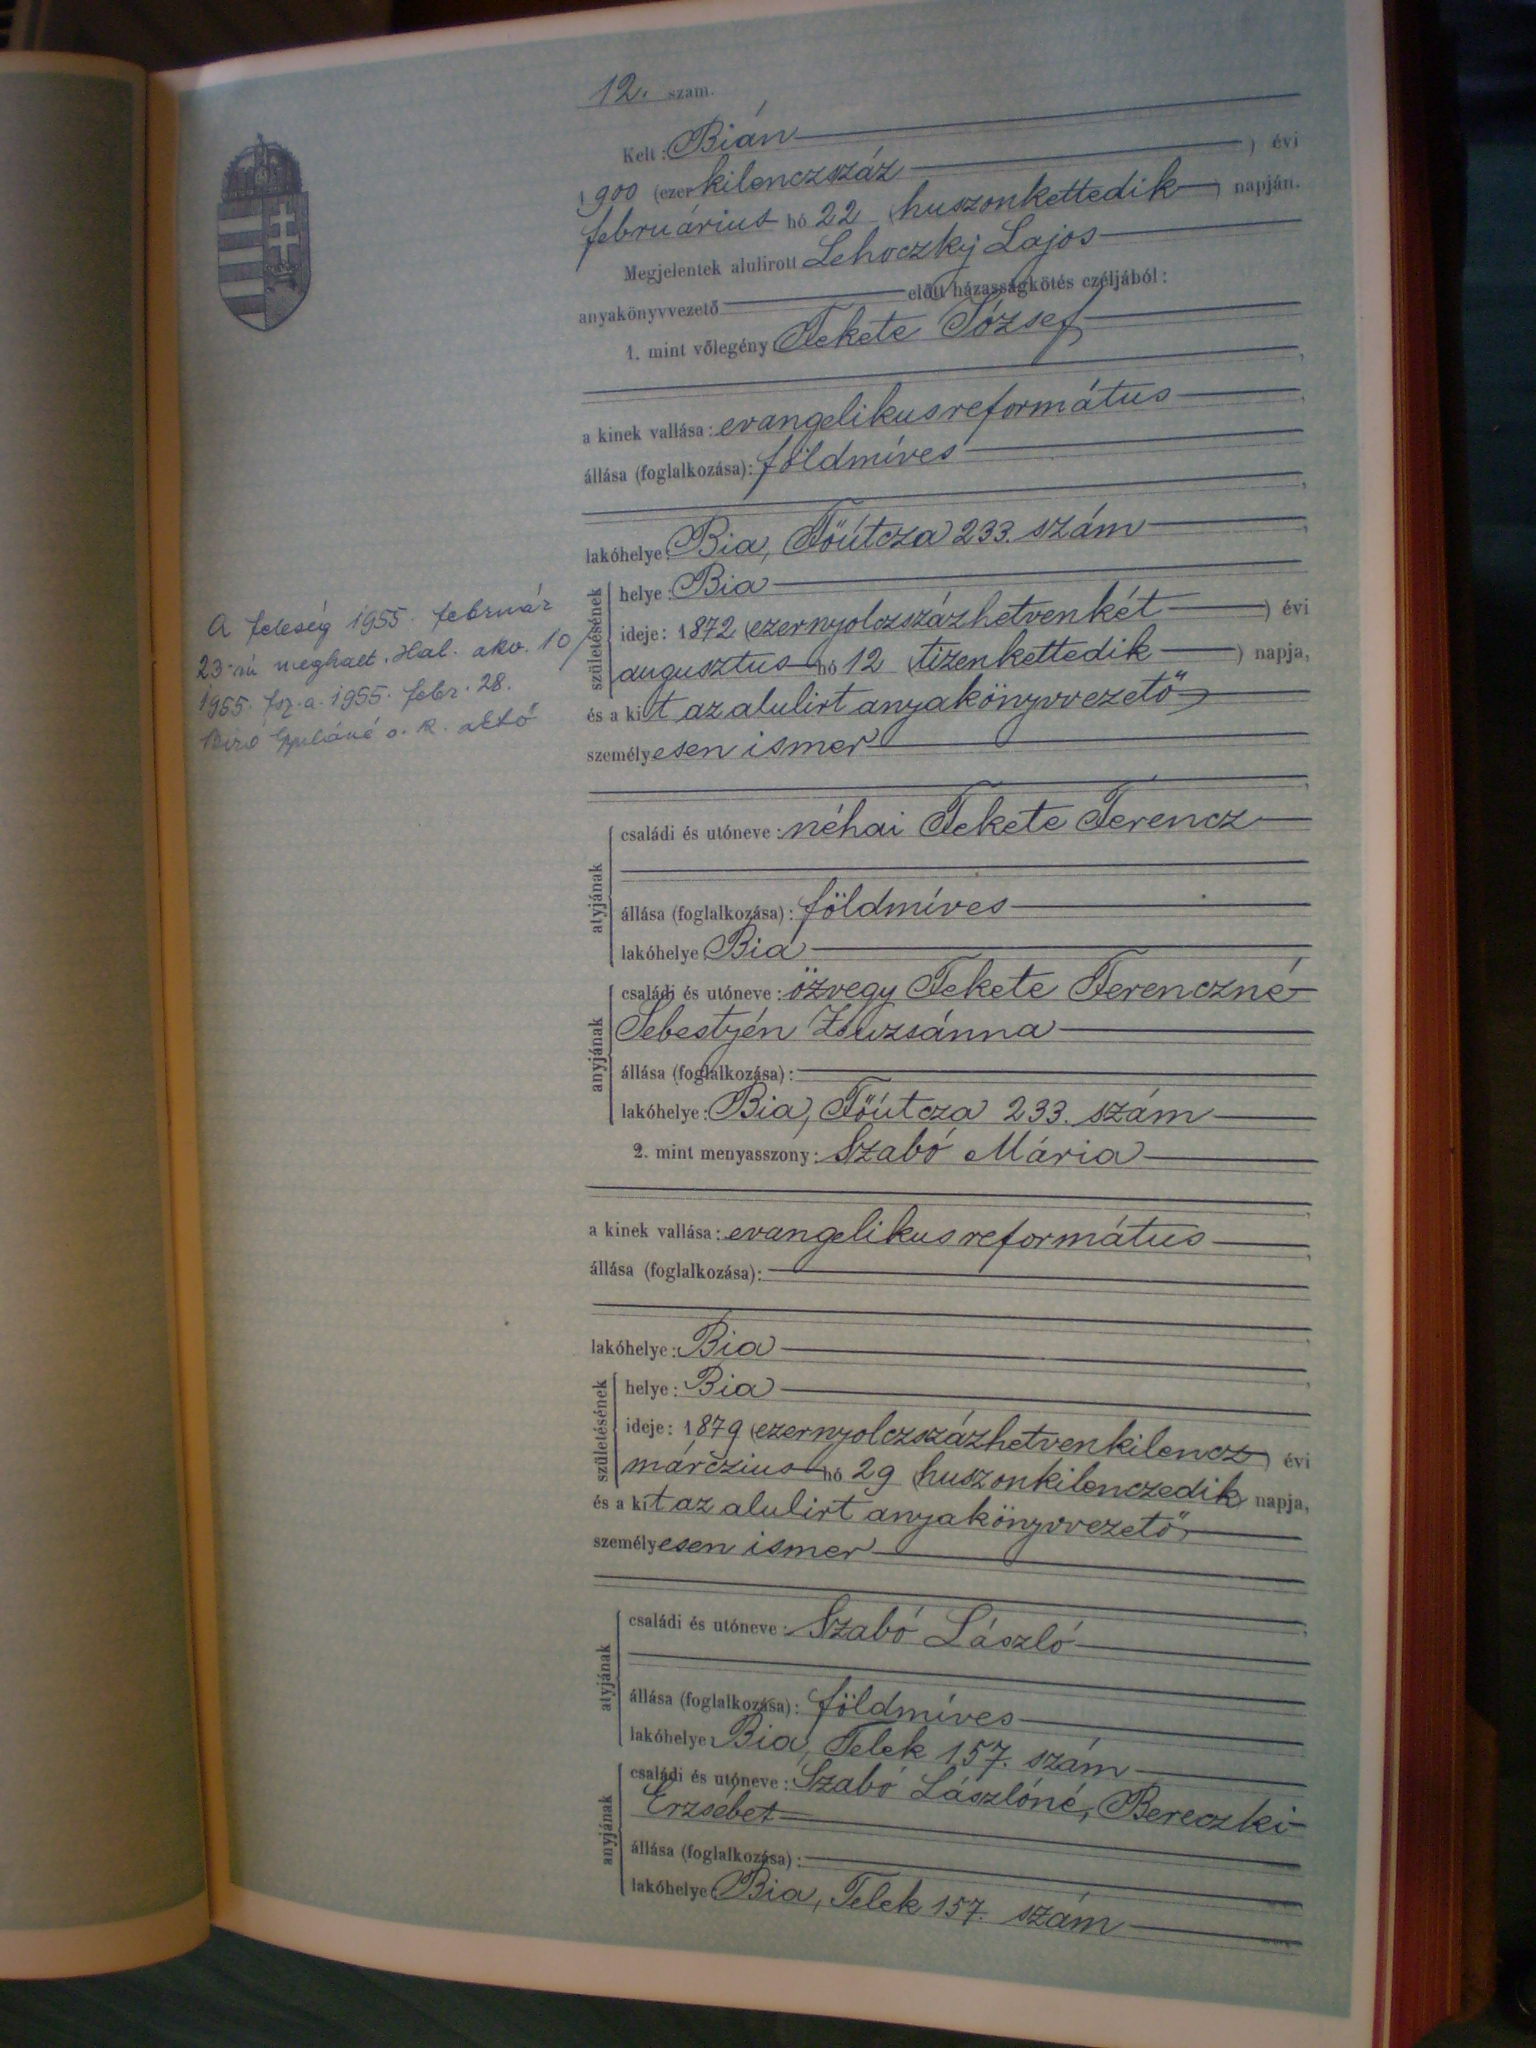 12. szam.
Kelt: Bián
1900 (ezer kilenczszáz ) évi
februárius hó 22 (huszonkettedik ) napján.
Megjelentek alulirott Lehoczky Lajos
anyakönyvvezető előtt házasságkötés czéljából:
1. mint vőlegény Fekete József
a kinek vallása: evangelikus református
állása (foglalkozása): földmíves
lakóhelye: Bia, Főútcza 233. szám
születésének
helye: Bia
ideje: 1872 (ezernyolczszázhetvenkét ) évi
augusztus hó 12 (tizenkettedik ) napja,
és a kit az alulirt anyakönyvvezető
személyesen ismer
A feleség 1955. február
23-án meghalt. Hal. akv. 10/
1955. fsz. a. 1955. febr. 28.
o. k.
atyjának
családi és utóneve: néhai Fekete Ferencz
állása (foglalkozása): földmíves
lakóhelye Bia
anyjának
családi és utóneve: özvegy Fekete Ferenczné
Sebestyén Zsuzsánna
állása (foglalkozása):
lakóhelye: Bia, Főútcza 233. szám
2. mint menyasszony: Szabó Mária
a kinek vallása: evangelikus református
állása (foglalkozása):
lakóhelye: Bia
születésének
helye: Bia
ideje: 1879 (ezernyolczszázhetvenkilencz ) évi
márczius hó 29 (huszonkilenczedik napja,
és a kit az alulirt anyakönyvvezető
személyesen ismer
atyjának
családi és utóneve: Szabó László
állása (foglalkozása): földmíves
lakóhelye Bia, Telek 157. szám
anyjának
családi és utóneve: Szabó Lászlóné, Bereczki
Erzsébet
állása (foglalkozása):
lakóhelye: Bia, Telek 157. szám